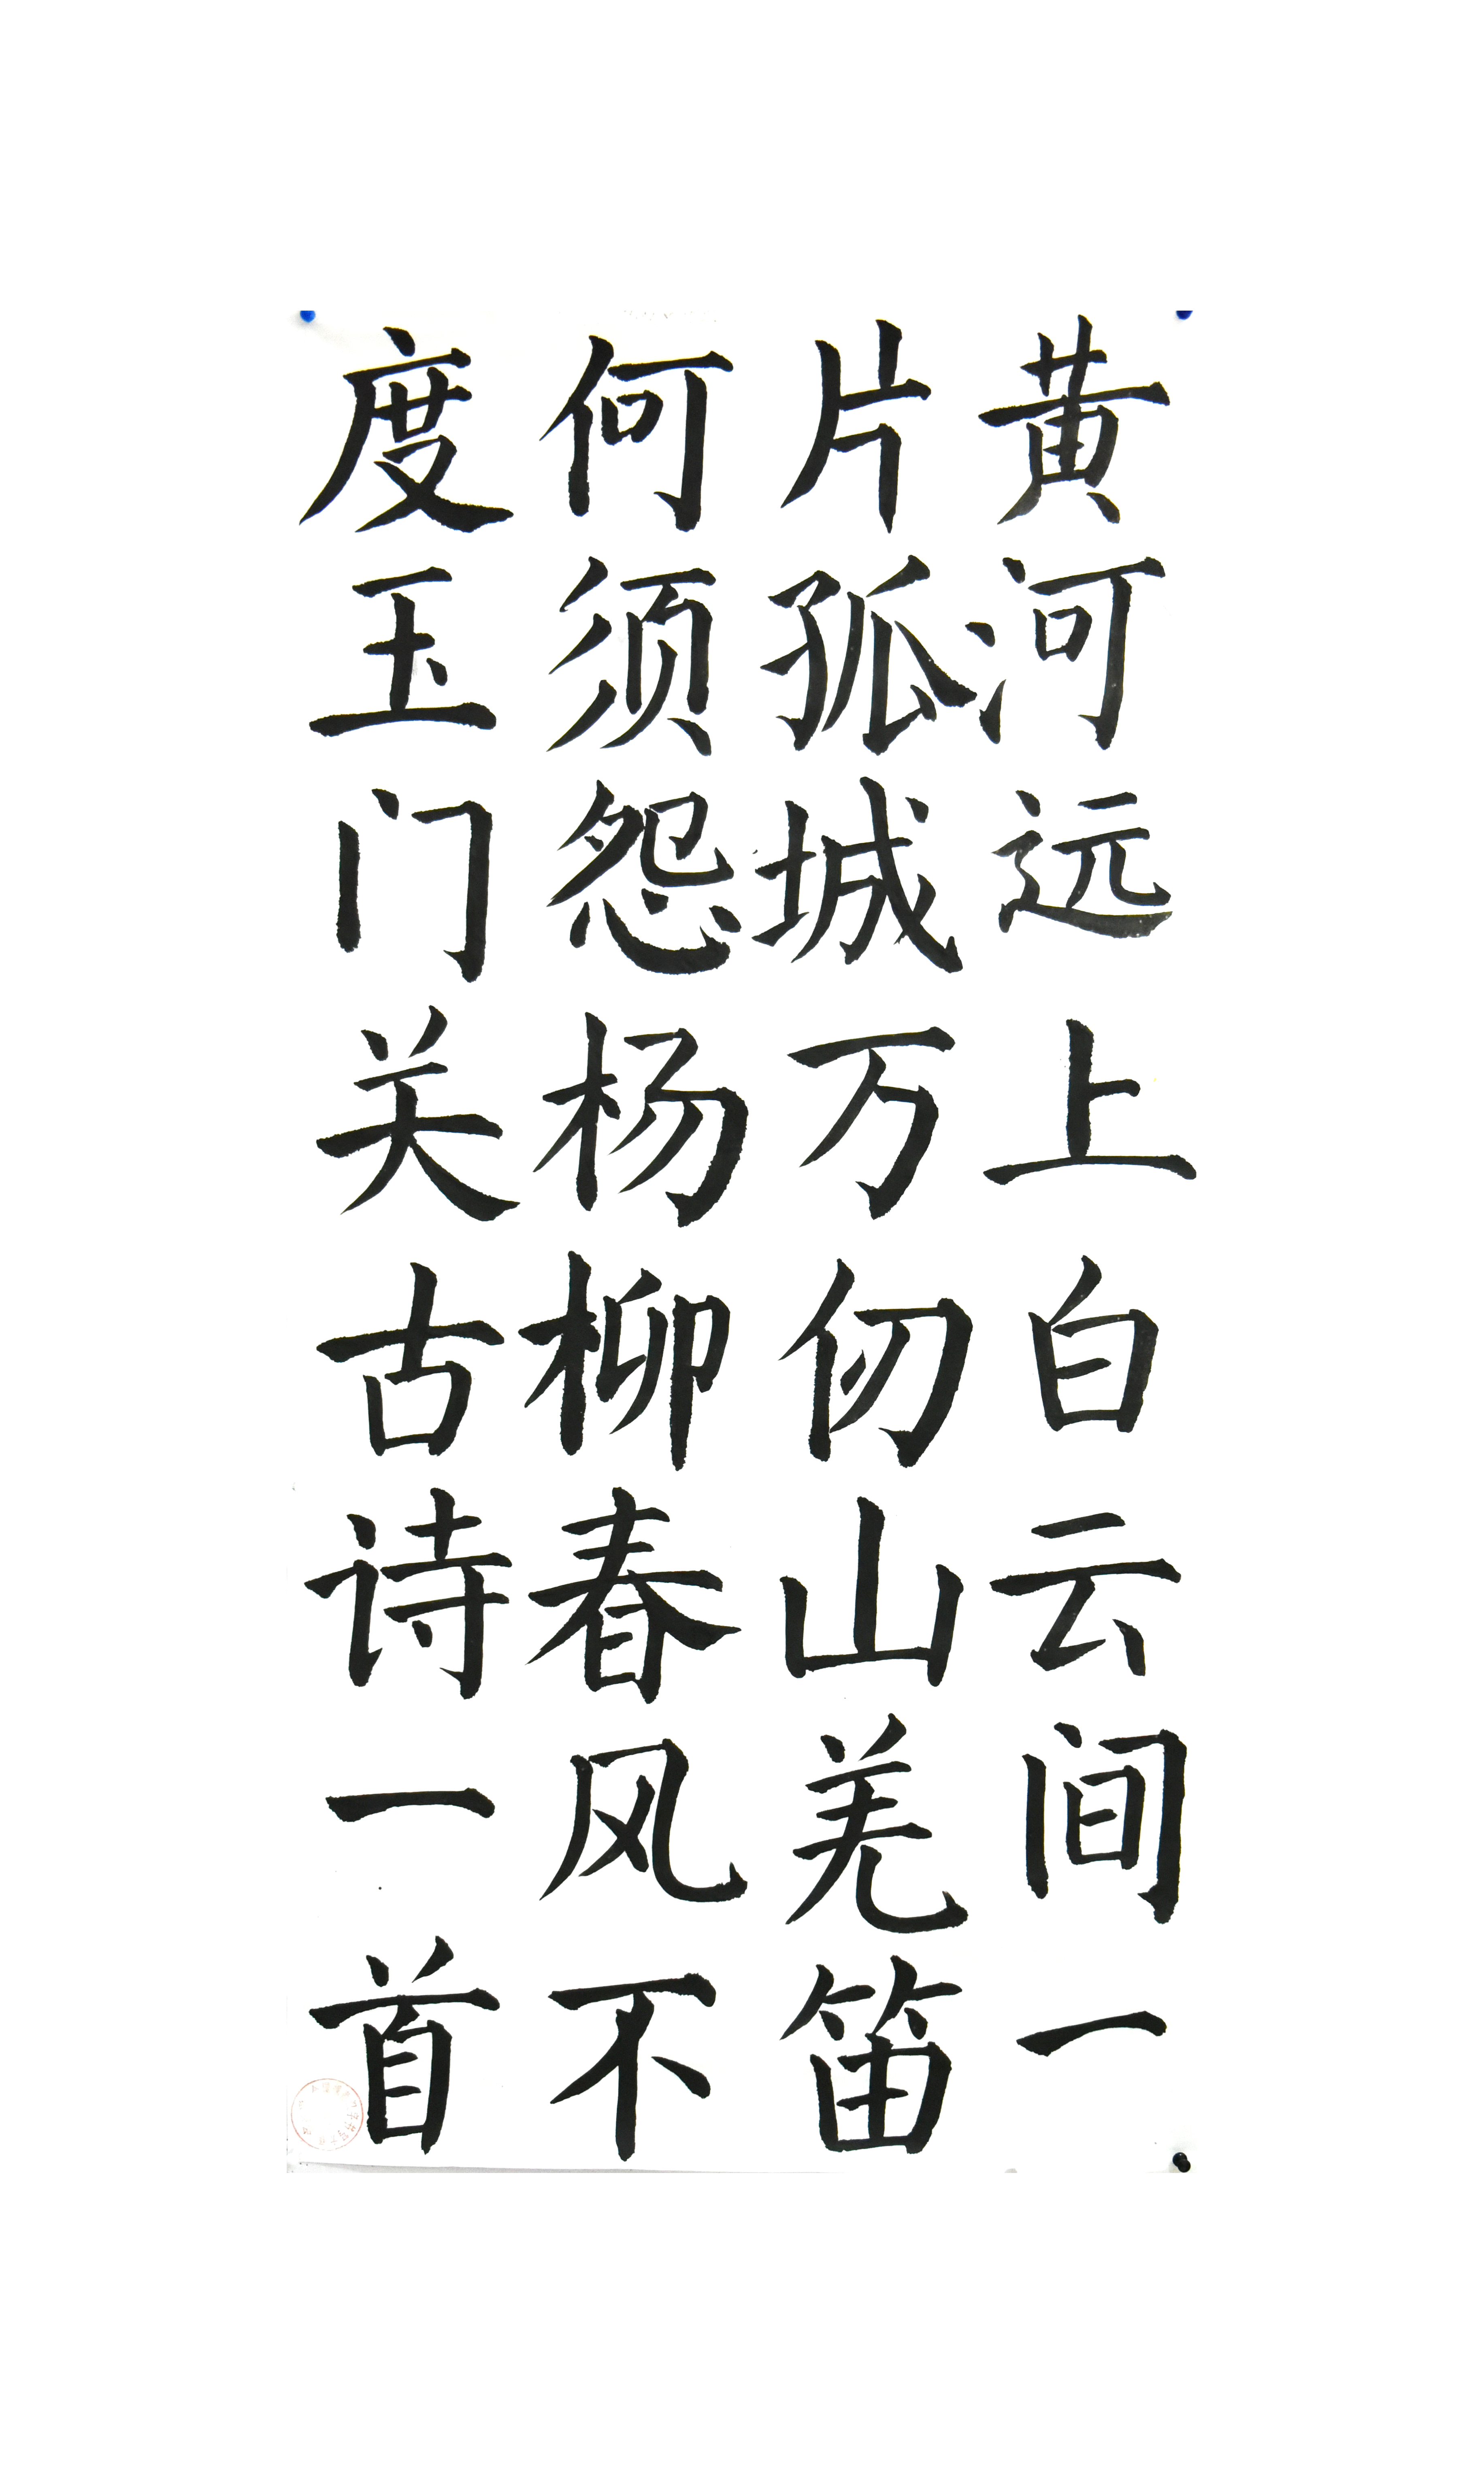 黄河远上白云间一
片孤城万仞山羌笛
何须怨杨柳春风不
度玉门关古诗一首